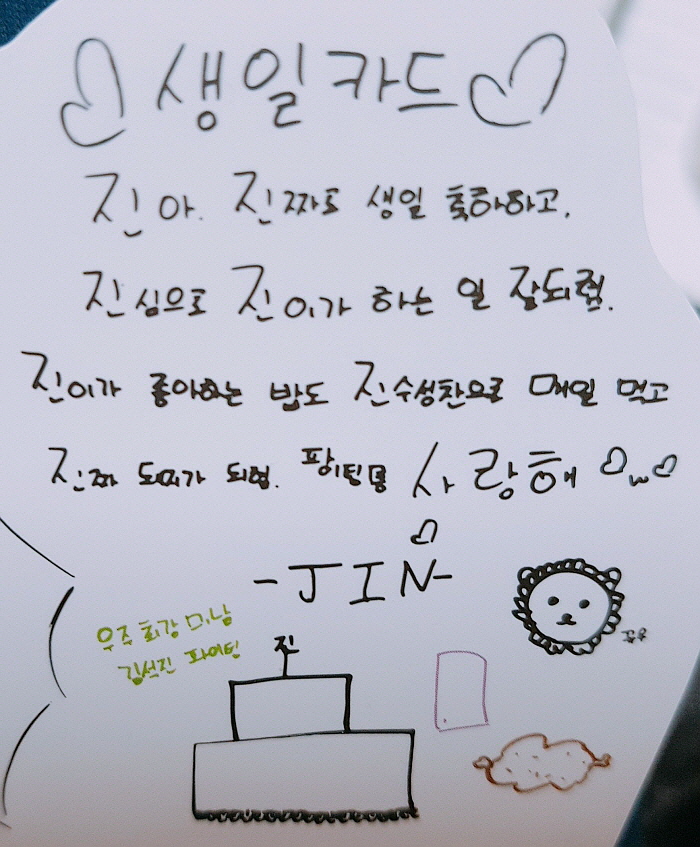 생일카드
진아. 진짜로 생일 축하하고,
진심으로 진이가 하는 일 잘되렴.
진이가 좋아하는 밥도 진수성찬으로 매일 먹고
진짜 도끼가 되렴. 팡이팅뿅 사랑해
-JIN-
우주 최강 미남
김석진 파이팅
진